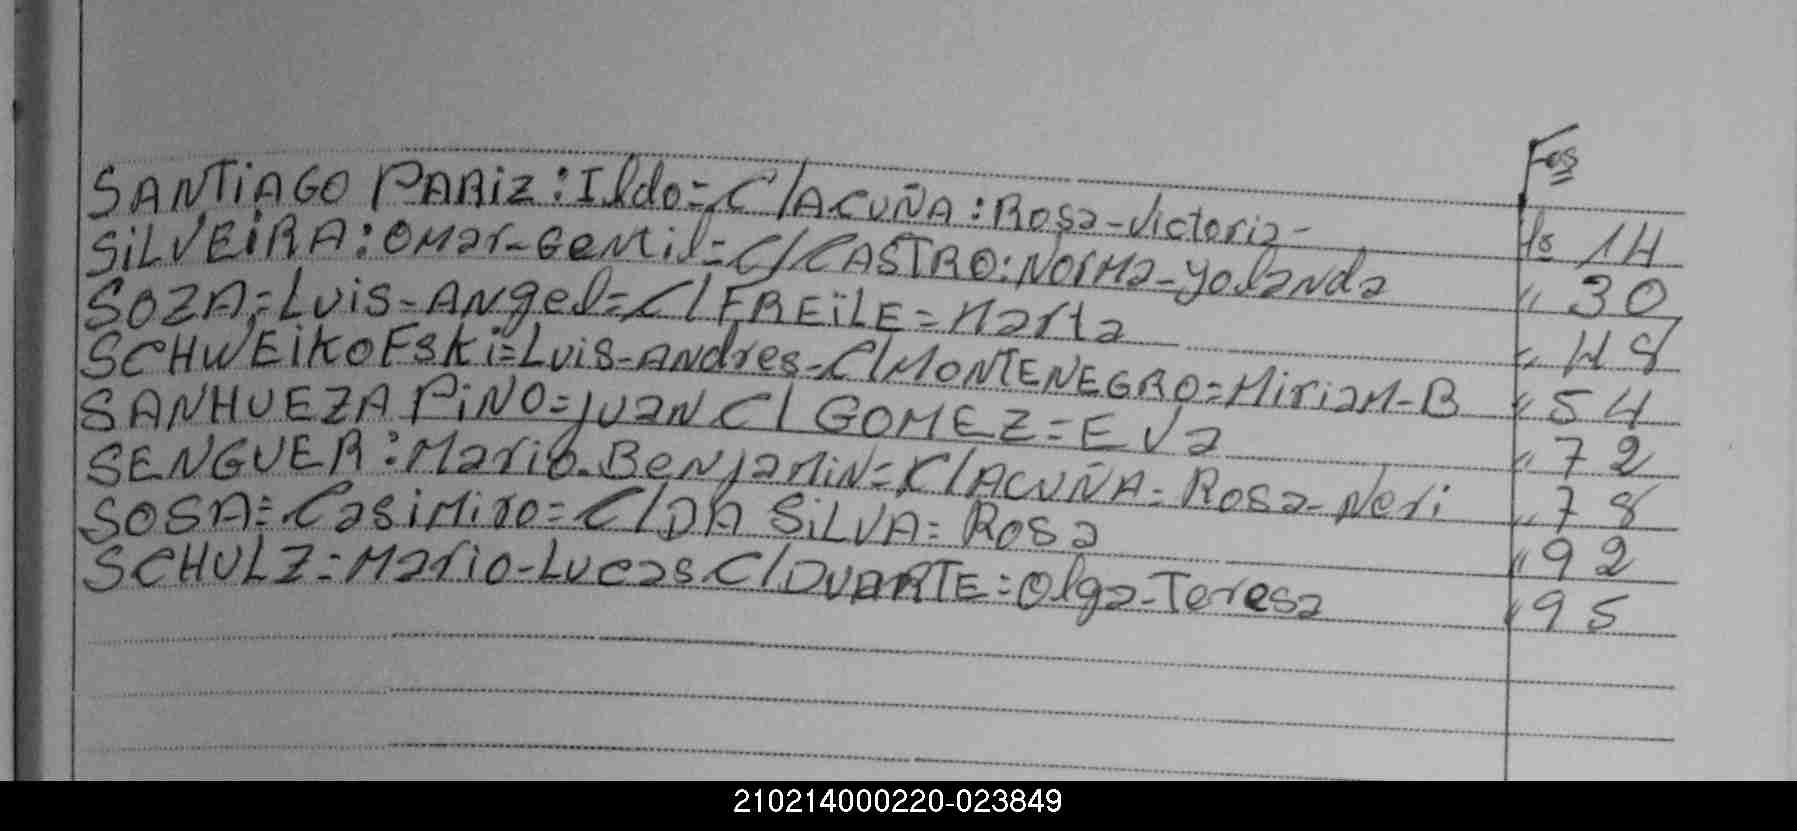 Fos
SANTIAGO PARIZ: Ildo= C/ACUÑA: Rosa-Victoria- fs 14
SILVEIRA: Omar-Gentil= C/CASTRO: Norma-Yolanda " 30
SOZA= Luis-Angel= C/FREILE= Marta " 48
SCHWEIKOFSKI= Luis-Andres- C/MONTENEGRO= Miriam-B " 54
SANHUEZA PINO= Juan C/GOMEZ= Eva " 72
SENGUER: Mario-Benjamin= C/ACUÑA= Rosa-Neri " 78
SOSA= Casimiro= C/DA SILVA= Rosa " 92
SCHULZ= Mario-Lucas C/DUARTE= Olga-Teresa " 95
210214000220-023849